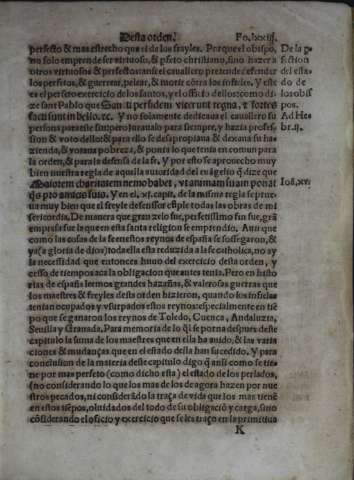 Desta orden. Fo.lxxiij.
perfecto & mas estrecho que el de los freyles. Porque el obispo,
no solo emprende ser virtuoso, & p̃secto christiano, sino hazer a
otros virtuosos & perfectos: ansi el cauallero pretende defender
los perfetos, & guerrear, pelear, & morir cõtra los infieles. Y este
es el perseto exercicio de los santos, y el officio dellos: como di
ze sant Pablo que Sancti per fidem vicerunt regna, & fortes
facti sunt in bello. &c. Y no solamente dedica aua el cauallero su
persona para este siempre
sion & voto dello: & para ello se desapropiana & dexaua su ha
zienda, & votaua pobreza, & ponia lo que tenia en comun para
la orden, & para la defensa de la fe. Y por esto se aprouecho muy
bien nuestra regla de aquella autoridad del euãgelio q̃ dize que
Maiorem charitatem nemo habet, vt animam suam ponat
pro amicis suis. Y en el. xj. capit. de la misma regla se prue
ua muy bien que el freyle defensor cũple todas las obras de mi
sericordia. De manera que gran zelo fue, perfetissimo fin fue, grã
empresa fue la que en esta santa religion se emprendio. Aun que
como las cosas de la frente stos reynos de españa se sossegaron, &
ya (a gloria de dios) toda ella esta reduzida a la fe catholica, no ay
la necessidad que entonces huuo del exercicio desta orden, y
cesso, de tiempos aca la obligacion que antes tenia. Pero en histo
rias de españa leemos grandes hazañas, & valerosas guerras que
los maestres & freyles desta orden hizieron, quando los infieles
tenian ocupados y vsurpados estos reynos: especialmente en tiẽ
po que se ganaron los reynos de Toledo, Cuenca, Andaluzia,
Seuilla y Granada. Para memoria de lo q̃l se porna despues deste
capitulo la suma de los maestres que en ella ha auido: & las varia
ciones & mudanças que en el estado della han sucedido. Y para
conclusion de la materia deste capitulo digo q̃ ansi como se tie
ne por mas perfeto (como dicho esta) el estado de los perlados,
(no considerando lo que los mas de los de agora hazen por nue
stros pecados, ni considerãdo la traça de vida que los mas tienẽ
en estos tiẽpos, oluidados del todo de su obligaciõ y carga, sino
cõsiderando el oficio y exercicio que se les traço en la primitiua
K
De la p̃
fection
del esta
do de
los obis
pos.
Ad Hebr. ij.
Ioã. xv.